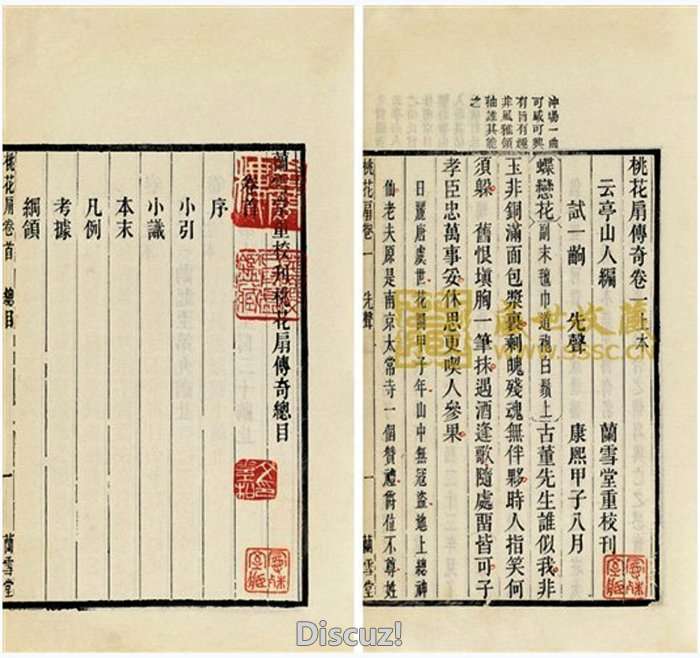 蘭雪堂重校刊桃花扇傳奇總目
卷首
序
小引
小識
本末
凡例
考據
綱領
桃花扇卷首 總目 一 蘭雪堂
冲場一曲
可感可興
有旨有
非風雅領
袖誰其能
之
桃花扇傳奇卷一上本
云亭山人編 蘭雪堂重校刊
試一齣 先聲 康熙甲子八月
蝶戀花副末氊巾道袍白鬚上古董先生誰似我非
玉非銅滿面包漿裹剩魄殘魂無伴夥時人指笑何
須躲 舊恨塡胸一筆抹遇酒逢歌隨處畱皆可子
孝臣忠萬事妥休思更喫人參果
日麗唐虞世花開甲子年山中無寇盜地上總神
仙老夫原是南京太常寺一個贊禮爵位不尊姓
桃花扇卷一 先聲 一 蘭雪堂
Discuz!